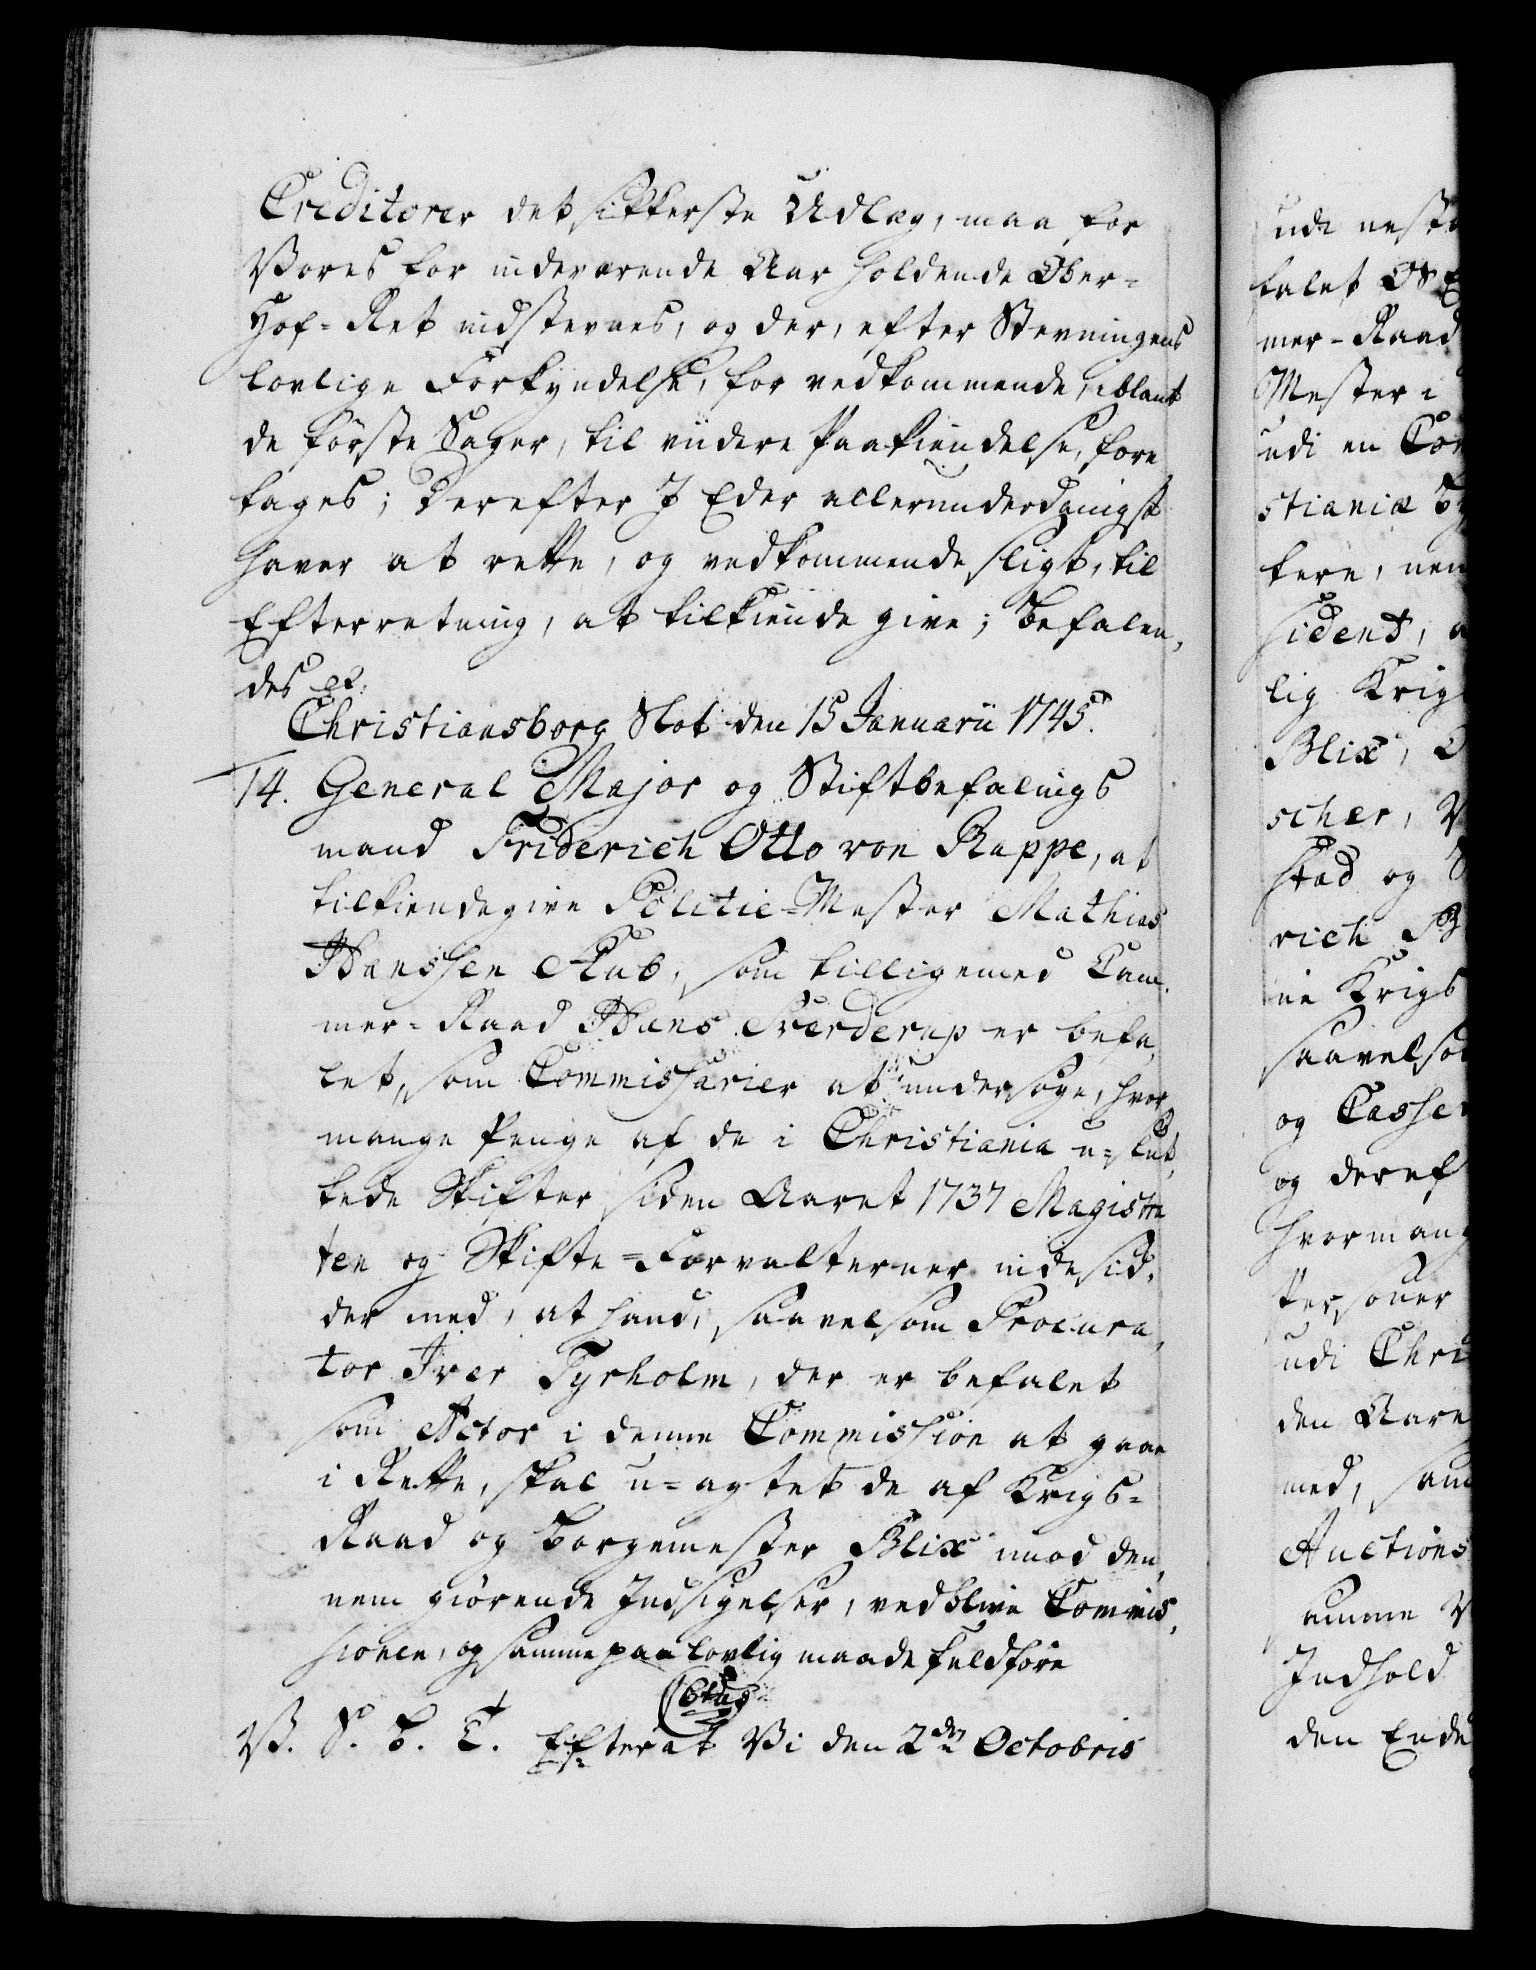 Creditorer det sikkerste Udlæg, maa for
Vores for indeværende Aar holdende Ober-
Hof-Ret indstevnes, og der, efter Stevningens
lovlige Forkyndelse, for vedkommende, iblant
de förste Sager, til viidere Paakiendelse, fore
tages; Derefter I Eder allerunderdanigst
haver at rette, og vedkommende sligt, til
Efterretning, at tilkiende give; Befalen,
des etc.
Christiansborg Slot den 15 Januarii 1745.
14. General Major og Stiftbefalings
mand Friderich Otto von Rappe, at
tilkiendegive Politie-Mester Mathias
Hanssen Stub, som tilligemed Cam
mer-Raad Hans Sverderup er befa,
let, som Commissarier at undersöge, hvor
mange Penge af de i Christiania u-slut,
tede Skifter siden Aaret 1737 Magistra
ten og Skifte-Forvalterner indesid,
der med, at hand, saavelsom Procura,
tor Iver Tyrholm, der er befalet
som Actor i denne Commission at gaae
i Rette, skal u-agtet de af Krigs-
Raad og Borgemester Blix imod den,
nem giörende Indsigelser, vedblive Commis,
sionen, og samme paa lovlig maade fuldföre
V. S. B. T. Efterat Vi den 2den Octobris
ude nest
falet Os
mer-Raad
Mester i
udi en Com
stiania By
kere, nem
sident,
lig Krigs
Blix,
scher,
stad og
rich
ne Krigs
saavelsom
og Casse
og deref
hvormang
Personer
udi Chri
den Aare
med, sam
Auctions
Summe
Indhold
den Ende